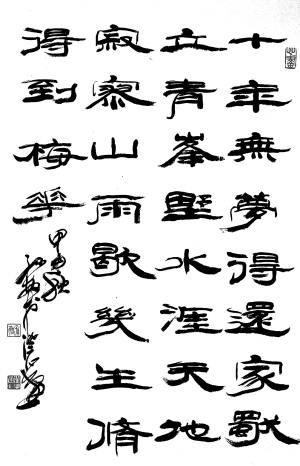 十年無夢得還家獨
立青峯野水涯天地
寂寥山雨歇幾生脩
得到梅華